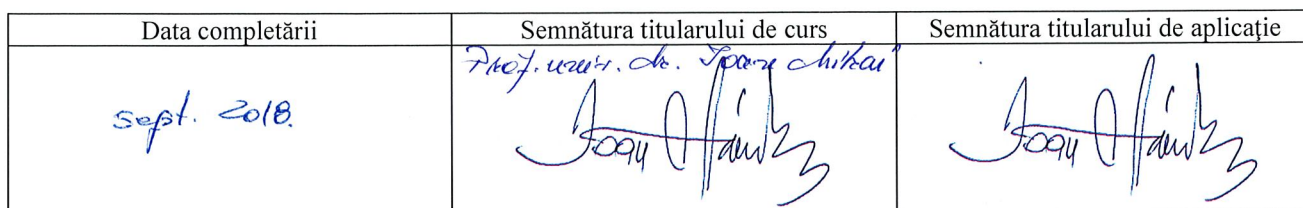 Data completării
Semnătura titularului de curs
Semnătura titularului de aplicaţie
Prof. univ. dr. Ioan Mihai
sept. 2018.